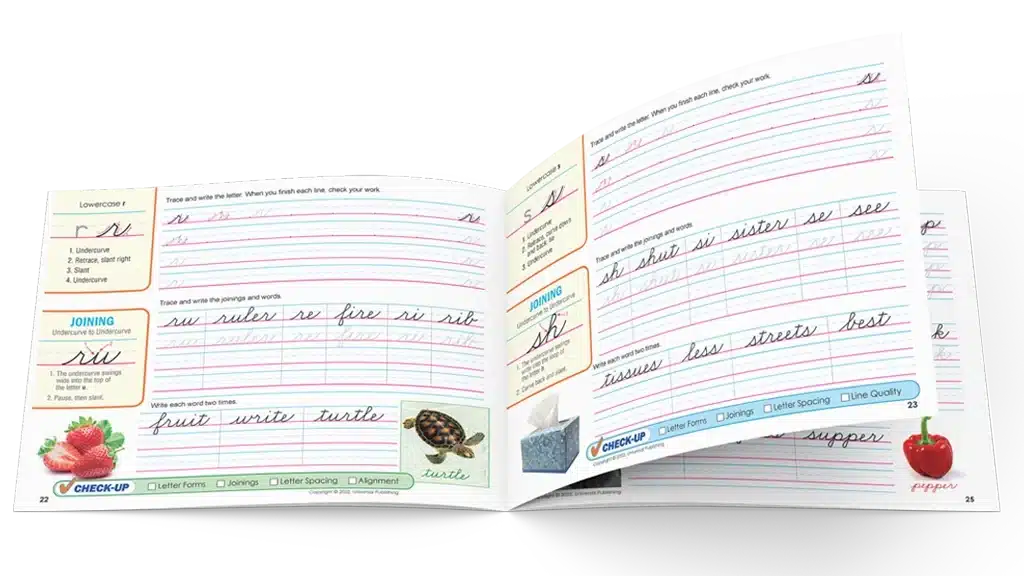 Lowercase r
r r
1. Undercurve
2. Retrace, slant right
3. Slant
4. Undercurve
JOINING
Undercurve to Undercurve
ru
1. The undercurve swings
wide into the top of
the letter u.
2. Pause, then slant.
Trace and write the letter. When you finish each line, check your work.
r r r r
r
r r
r r
Trace and write the joinings and words.
ru ruler re fire ri rib
ru ruler re fire ri rib
Write each word two times.
fruit write turtle
turtle
CHECK-UP Letter Forms Joinings Letter Spacing Alignment
Copyright © 2022, Universal Publishing
22
Lowercase s
s s
1. Undercurve
2. Retrace, curve down
and back, lift
3. Undercurve
JOINING
Undercurve to Undercurve
sh
1. The undercurve swings
wide into the loop of
the letter h.
2. Curve back and slant.
Trace and write the letter. When you finish each line, check your work.
s s s s
s s
s s
s s
Trace and write the joinings and words.
sh shut si sister se see
sh shut si sister se see
Write each word two times.
tissues less streets best
CHECK-UP Letter Forms Joinings Letter Spacing Line Quality
23
supper
pepper
25